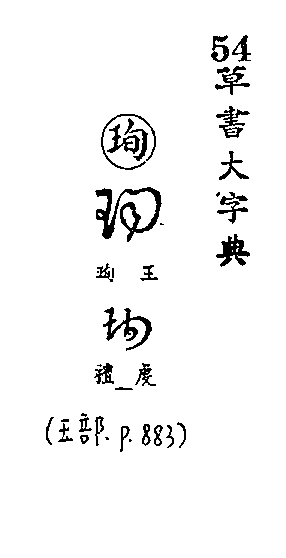 54草書大字典
珣
珣
王珣
珣
虞_禮
(玉部. p. 883)